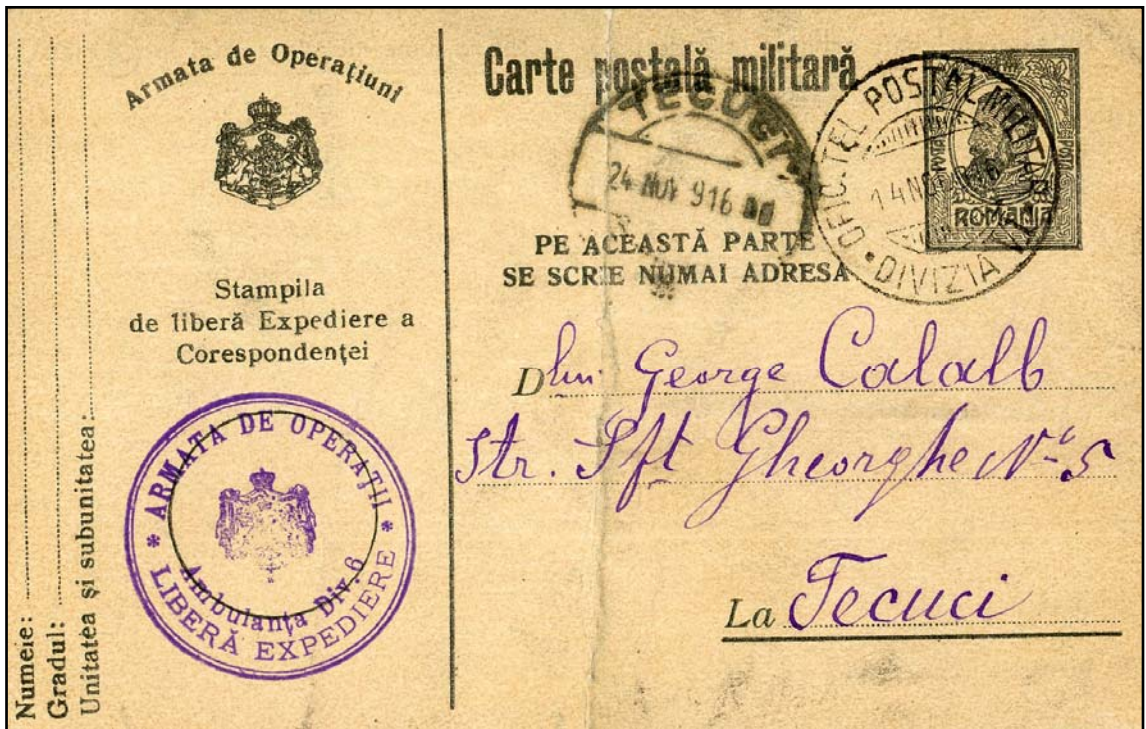 Numele:
Gradul:
Unitatea și subunitatea:
Armata de Operațiuni
Stampila
de liberă Expediere a
Corespondenței
* ARMATA DE OPERAȚII *
Ambulanța Div. 6
LIBERĂ EXPEDIERE
Carte postală militară
TECUCI
24 NOV 916
OFIC. TEL POSTAL MILITAR
14 NOE 916
DIVIZIA
ROMANIA
PE ACEASTĂ PARTE
SE SCRIE NUMAI ADRESA
Dlui George Calalb
Str. Sft Gheorghe No 5
La Tecuci